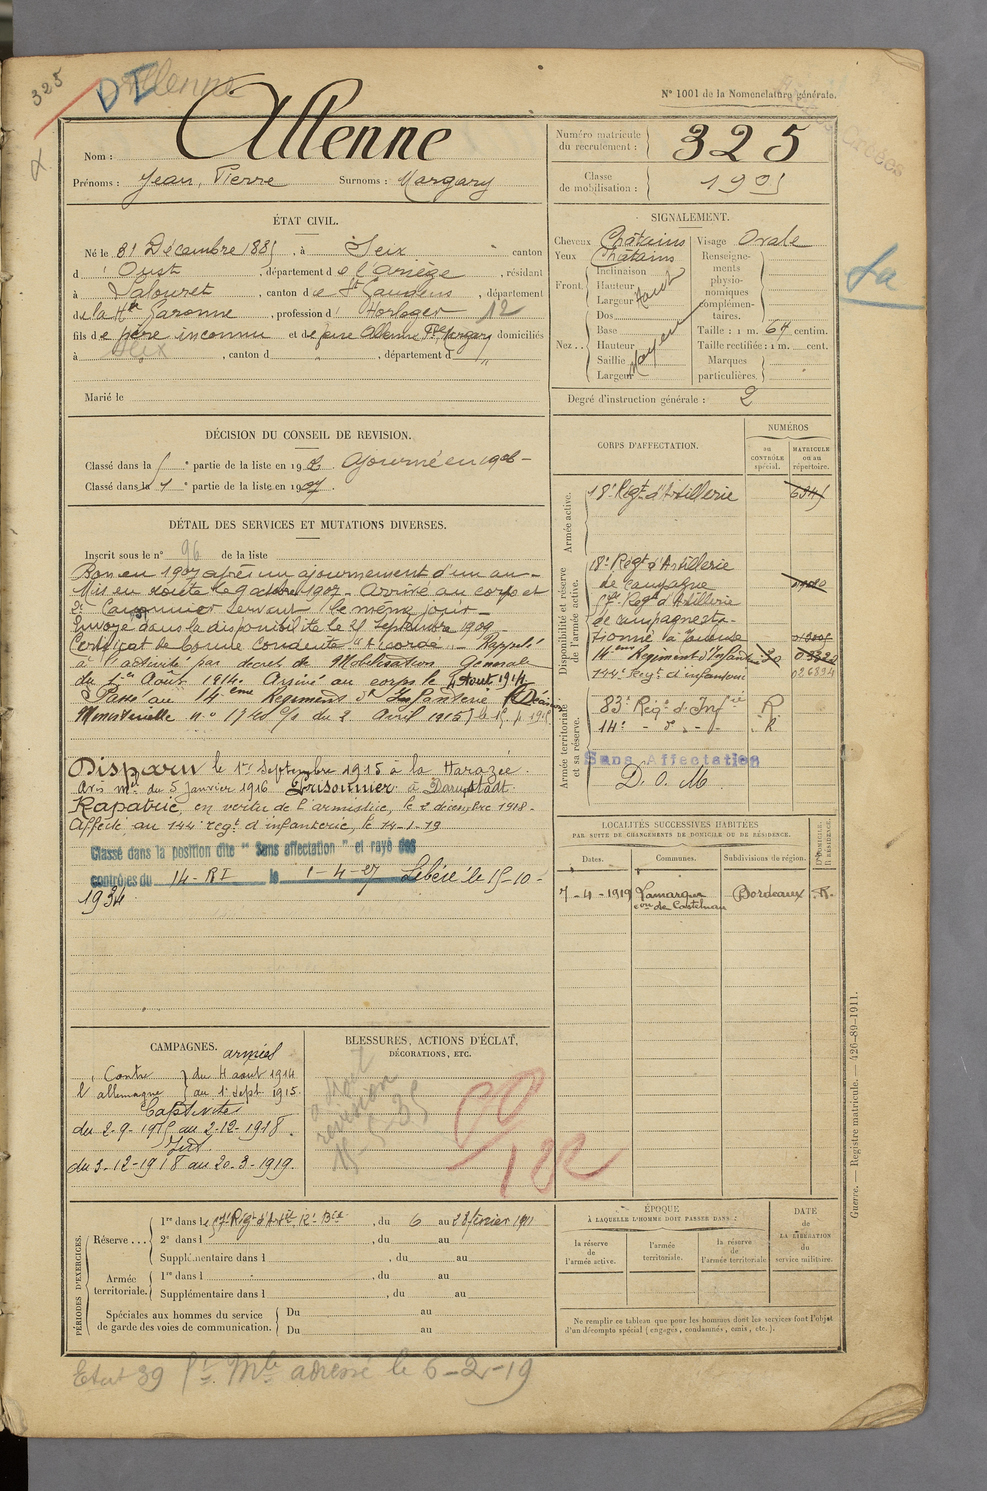 325
DI
Allenne
N° 1001 de la Nomenclature générale.
Nom : Allenne
Prénoms : Jean, Pierre Surnoms : Margary
Numéro matricule du recrutement : 325
Classe de mobilisation : 1905
ÉTAT CIVIL.
Né le 31 Décembre 1885, à Seix canton
d' Oust, département de l'Ariège, résidant
à Labouret, canton de St Gaudens, département
de la Hte Garonne, profession d' Horloger 12
fils de père inconnu et de feue Allenne Margary domiciliés
à Seix, canton d " , département d "
Marié le
SIGNALEMENT.
Cheveux Châtains
Yeux Châtains
Front. Inclinaison
Hauteur haut
Largeur
Nez.. Dos
Base
Hauteur moyen
Saillie
Largeur
Visage Ovale
Renseignements physionomiques complémentaires.
Taille : 1 m. 64 centim.
Taille rectifiée : 1 m. cent.
Marques particulières.
Degré d'instruction générale : 2
DÉCISION DU CONSEIL DE REVISION.
Classé dans la 5e partie de la liste en 1906. Ajourné en 1906 -
Classé dans la 1e partie de la liste en 1907.
DÉTAIL DES SERVICES ET MUTATIONS DIVERSES.
Inscrit sous le n° 96 de la liste
Bon en 1907 après un ajournement d'un an -
Mis en route le 9 octobre 1907 - Arrivé au corps et
2e Canonnier servant le même jour -
Envoyé dans la disponibilité le 25 Septembre 1909
Certificat de bonne conduite "Accordé" - Rappelé
à l'activité par décret de Mobilisation Générale
du 1er Août 1914. Arrivé au corps le 4 Août 1914
Passé au 14ème Régiment d'Infanterie (Décision
Ministérielle n° du 2 Avril 1915)
Disparu le 1er Septembre 1915 à la Harazée.
Avis mel du 5 janvier 1916 Prisonnier à Darmstadt.
Rapatrié, en vertu de l'armistice, le 2 décembre 1918 -
Affecté au 144e regt d'infanterie, le 14-1-19
Classé dans la position dite " Sans affectation " et rayé des
contrôles du 14-RI le 1-4-27 Libéré le 15-10-
1934
CORPS D'AFFECTATION.
NUMÉROS
au CONTRÔLE spécial.
MATRICULE ou au répertoire.
Armée active.
18e Regt d'Artillerie
Disponibilité et réserve de l'armée active.
18e Regt d'Artillerie
de Campagne
57e Regt d'Artillerie
de campagne sta-
tionné à Toulouse
14ème Régiment d'Infanterie
144e Regt d'infanterie 026894
Armée territoriale et sa réserve.
83e Regt d'Infrie R
14e - d° - R
Sans Affectation
D. O. M.
LOCALITÉS SUCCESSIVES HABITÉES
PAR SUITE DE CHANGEMENTS DE DOMICILE OU DE RÉSIDENCE.
Dates. Communes. Subdivisions de région. D. DOMICILE. R. RÉSIDENCE.
7-4-1919 Lamarque con de Castelnau Bordeaux R.
CAMPAGNES.
armées
Contre l'allemagne du 4 aout 1914
au 1er sept 1915.
Captivité
du 2-9-1915 au 2-12-1918.
du 3-12-1918 au 20-3-1919.
BLESSURES, ACTIONS D'ÉCLAT,
DÉCORATIONS, ETC.
a droit
revision
15-5-35
PÉRIODES D'EXERCICES.
Réserve... 1re dans le 57e Regt d'Artie 12e Bie, du 6 au 28 février 1911
2e dans l , du au
Supplémentaire dans l , du au
Armée territoriale. 1re dans l , du au
Supplémentaire dans l , du au
Spéciales aux hommes du service de garde des voies de communication. Du au
Du au
ÉPOQUE
À LAQUELLE L'HOMME DOIT PASSER DANS :
la réserve de l'armée active.
l'armée territoriale.
la réserve de l'armée territoriale
DATE de LA LIBÉRATION du service militaire.
Ne remplir ce tableau que pour les hommes dont les services font l'objet
d'un décompte spécial (engagés, condamnés, omis, etc.).
Guerre. — Registre matricule. — 426-89-1911.
Etat 39 Mle adressé le 6-2-19